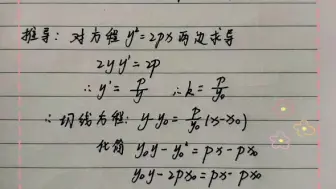 推导: 对方程 y²=2px 两次求导
2yy'=2p
∴ y'=p/y ∴k=p/y₀
∴切线方程: y-y₀=p/y₀(x-x₀)
化简 y₀y-y₀²=px-px₀
y₀y-2px₀=px-px₀